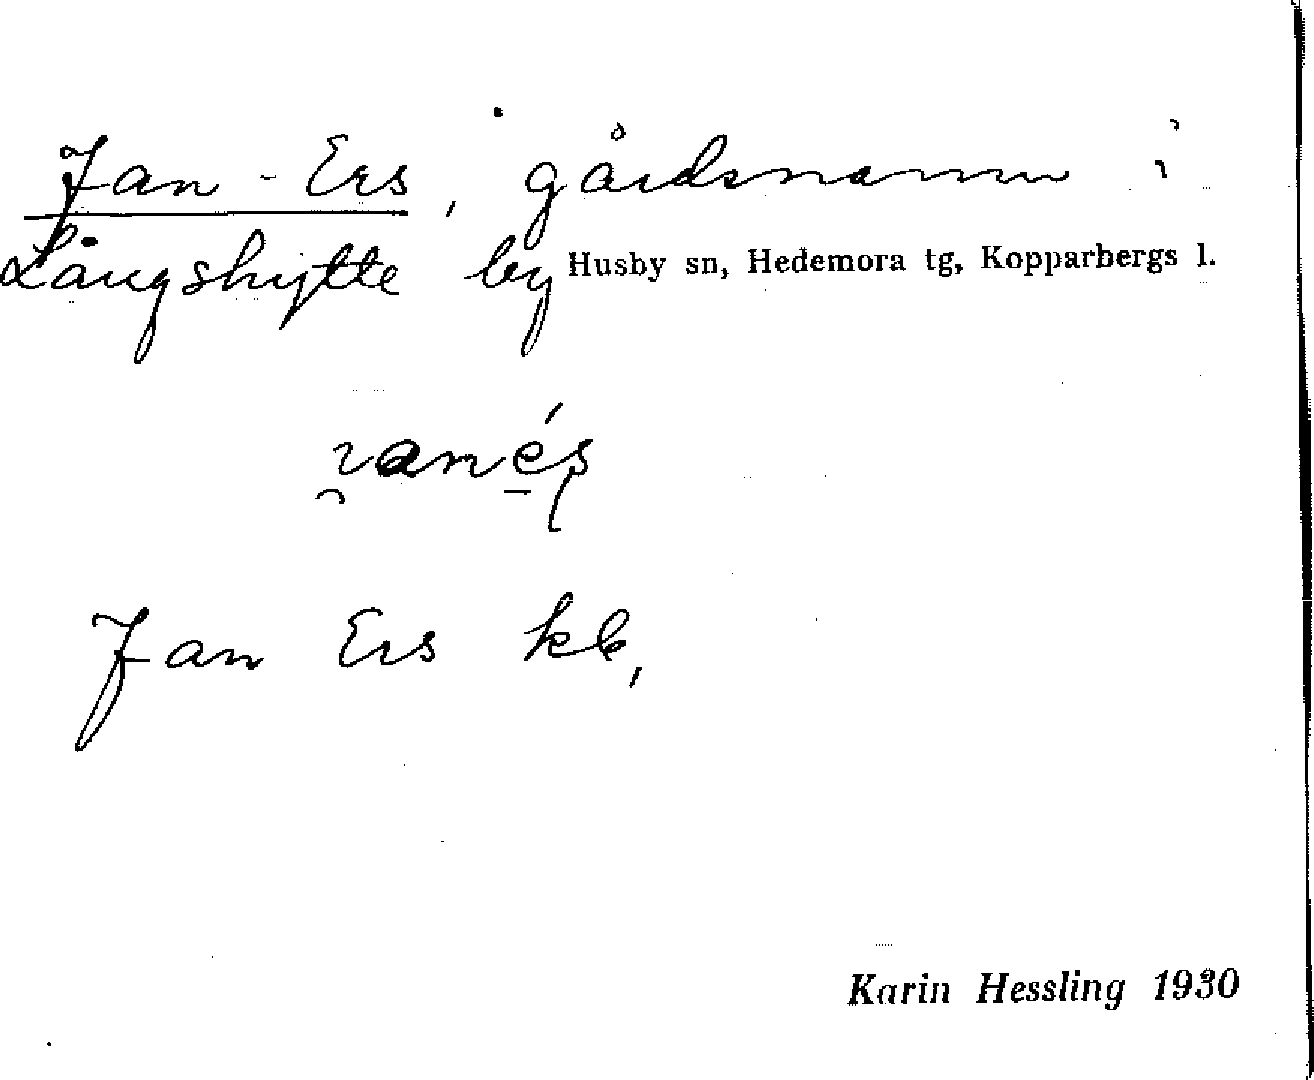 Jan-Ers, gårdsnamn i
Långshytte by Husby sn, Hedemora tg, Kopparbergs l.
Jan Ers kl,
Karin Hessling 1930